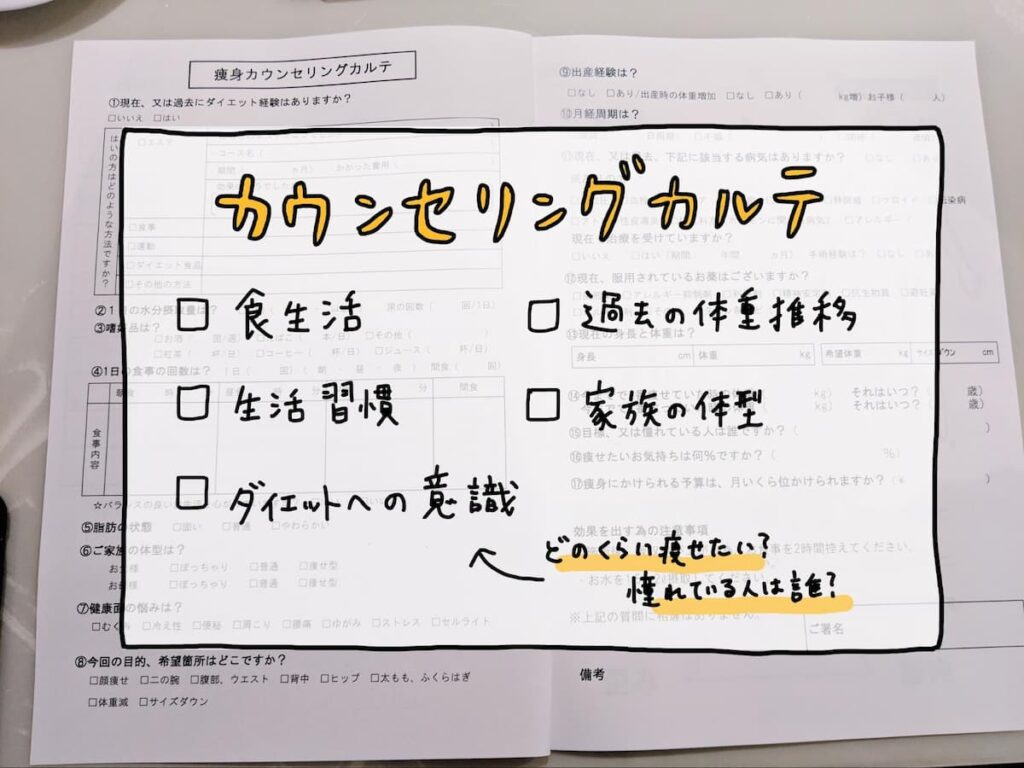 痩身カウンセリングカルテ
①現在、又は過去にダイエット経験はありますか?
□いいえ □はい
はいの方はどのような方法ですか?
□エステ
・コース名(
期間 ヵ月) かかった費用(
□食事
□運動
□ダイエット食品
□その他の方法
カウンセリングカルテ
□ 食生活
□ 生活習慣
□ ダイエットへの意識
□ 過去の体重推移
□ 家族の体型
どのくらい痩せたい?
憧れている人は誰?
②1日の水分摂取量は?
尿の回数( 回/1日)
③嗜好品は?
□紅茶( 杯/日) □コーヒー( 杯/日) □ジュース( 杯/日)
④1日の食事の回数は? 1日( 回)( 朝 ・ 昼 ・ 夜 ) 間食( 回)
間食
食事内容
⑤脂肪の状態 □固い □普通 □やわらかい
⑥ご家族の体型は?
お父様 □ぽっちゃり □普通 □痩せ型
お母様 □ぽっちゃり □普通 □痩せ型
⑦健康面の悩みは?
□むくみ □冷え性 □便秘 □肩こり □腰痛 □ゆがみ □ストレス □セルライト
⑧今回の目的、希望箇所はどこですか?
□顔痩せ □二の腕 □腹部、ウエスト □背中 □ヒップ □太もも、ふくらはぎ
□体重減 □サイズダウン
⑨出産経験は?
□なし □あり/出産時の体重増加 □なし □あり( kg増)お子様( 人)
⑩月経周期は?
⑪現在、又は過去、下記に該当する病気はありますか? □なし □あり
現在、治療を受けていますか?
□いいえ □はい(期間 年間 ヵ月) 手術経験は?
⑫現在、服用されているお薬はございますか?
⑬現在の身長と体重は?
身長 cm 体重 kg 希望体重 kg サイズダウン cm
kg) それはいつ?( 歳)
kg) それはいつ?( 歳)
⑮目標、又は憧れている人は誰ですか?( )
⑯痩せたいお気持ちは何%ですか?( %)
⑰痩身にかけられる予算は、月いくら位かけられますか?(¥
効果を出す為の注意事項
事を2時間控えてください。
※上記の質問に相違はありません。
ご署名
備考